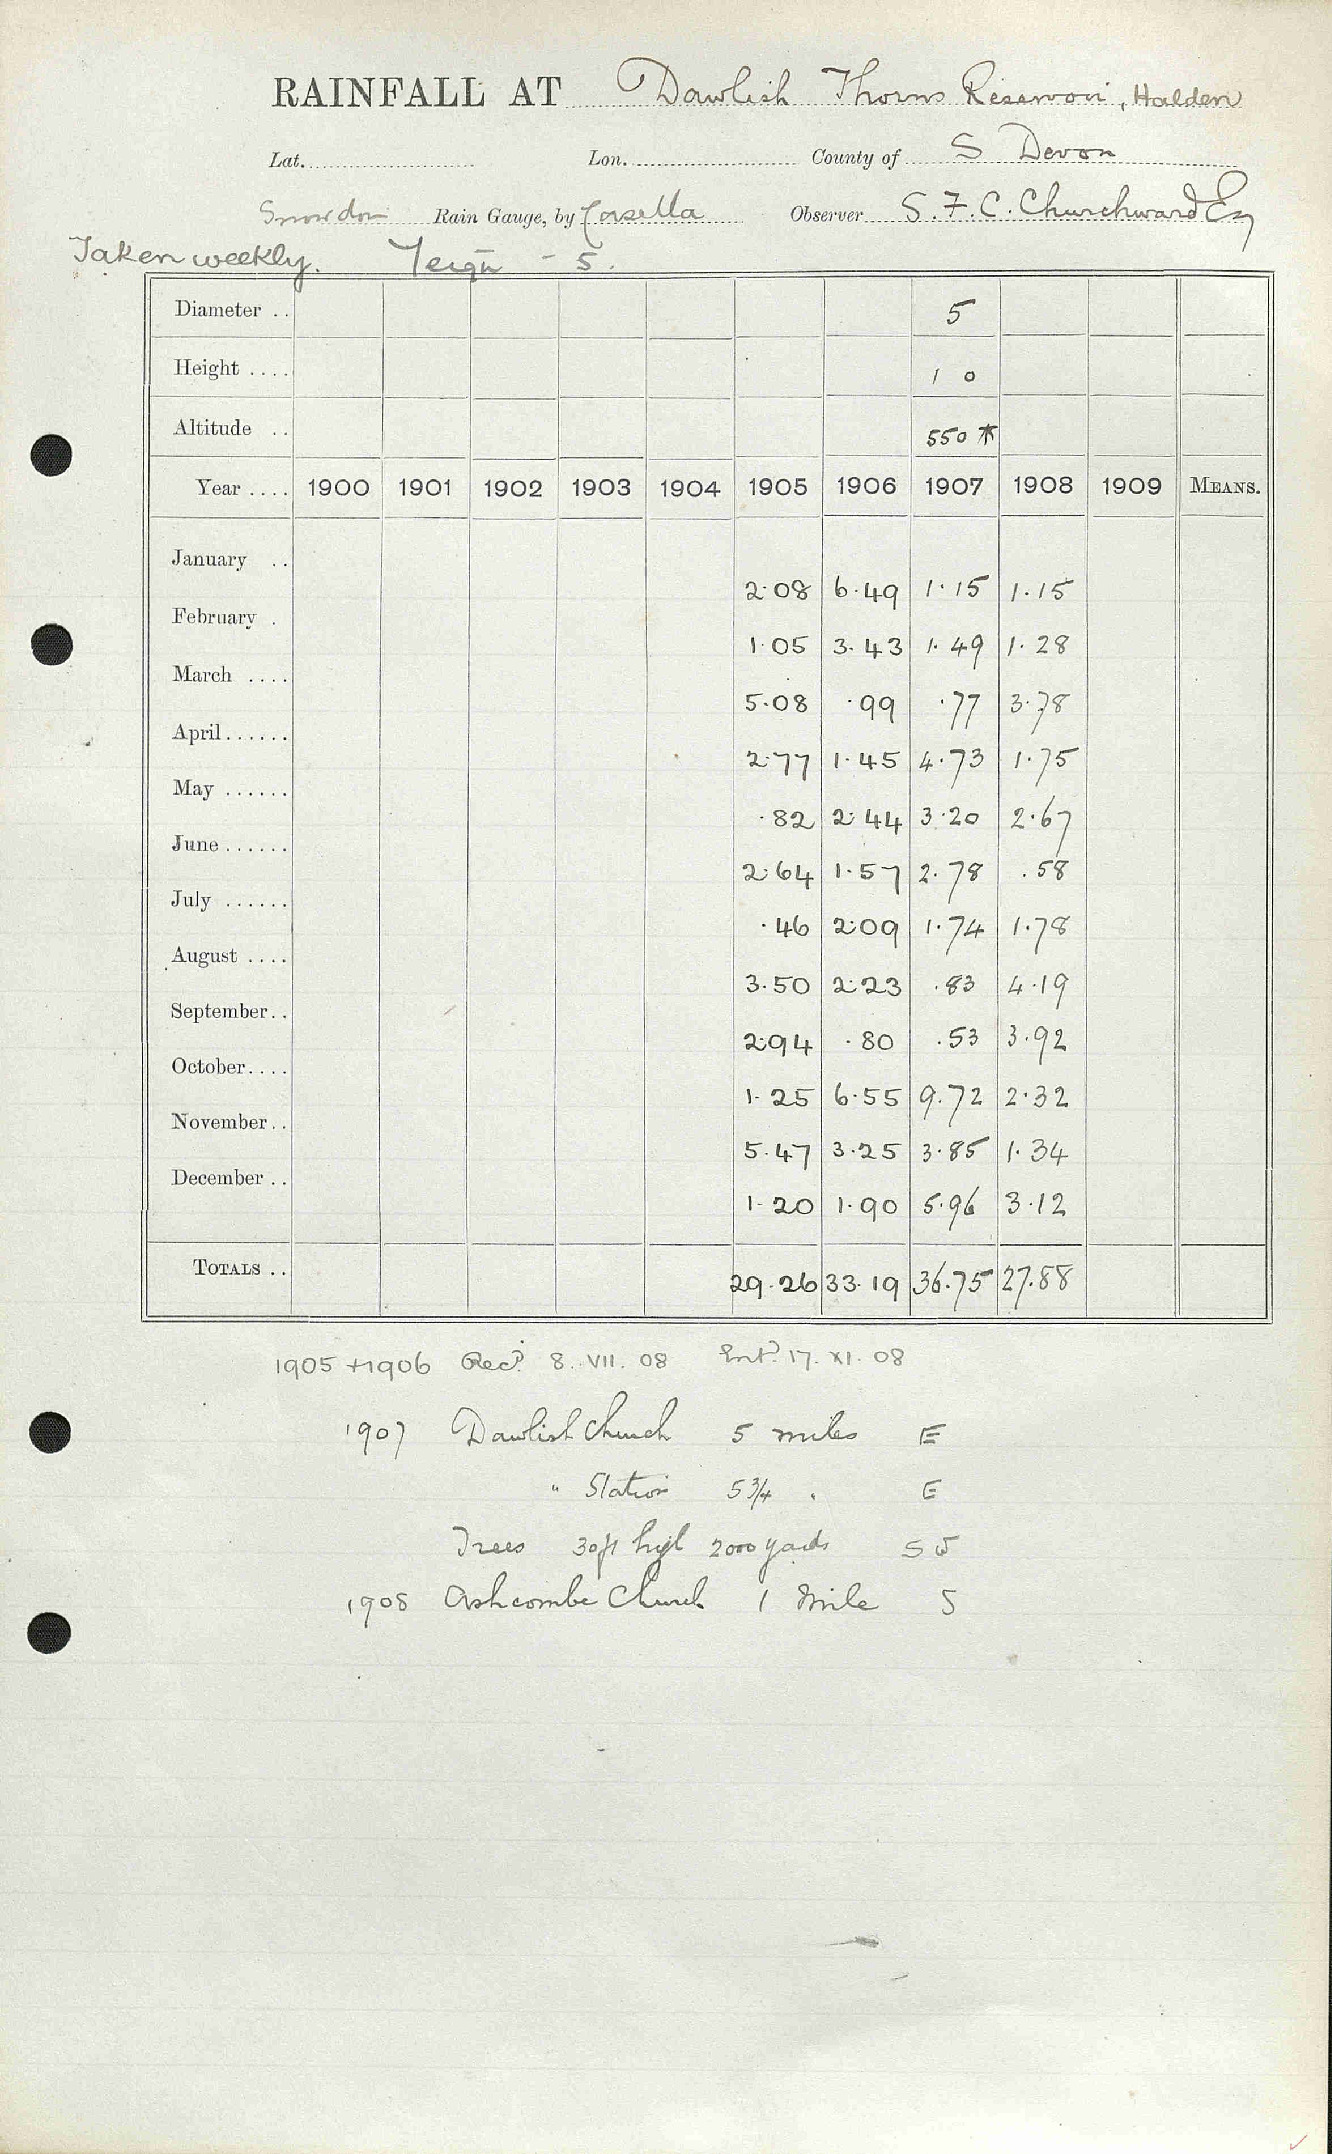 RAINFALL AT Dawlish Thorns Reservoir, Halden
Lat. Lon. County of S Devon
Snowdon Rain Gauge, by Casella Observer S. F. C. Churchward Esq
Taken weekly. Teign - 5.
Diameter .. 5
Height .... 1 0
Altitude .. 550 *
Year .... 1900 1901 1902 1903 1904 1905 1906 1907 1908 1909 MEANS.
January ..
2.08 6.49 1.15 1.15
February .
1.05 3.43 1.49 1.28
March ....
5.08 .99 .77 3.78
April......
2.77 1.45 4.73 1.75
May ......
.82 2.44 3.20 2.67
June ......
2.64 1.57 2.78 .58
July ......
.46 2.09 1.74 1.78
August ....
3.50 2.23 .83 4.19
September..
2.94 .80 .53 3.92
October....
1.25 6.55 9.72 2.32
November..
5.47 3.25 3.85 1.34
December ..
1.20 1.90 5.96 3.12
TOTALS .. 29.26 33.19 36.75 27.88
1905 + 1906 Recd. 8. VII. 08 Entd. 17. XI. 08
1907 Dawlish Church 5 miles E
" Station 5 3/4 " E
Trees 30ft high 2000 yards SW
1908 Ashcombe Church 1 Mile S